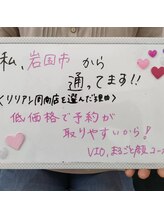 私、岩国市から
通ってます!!
〈リリアン周南店を選んだ理由〉
低価格で予約が
取りやすいから!
VIO、まるごと顔コース